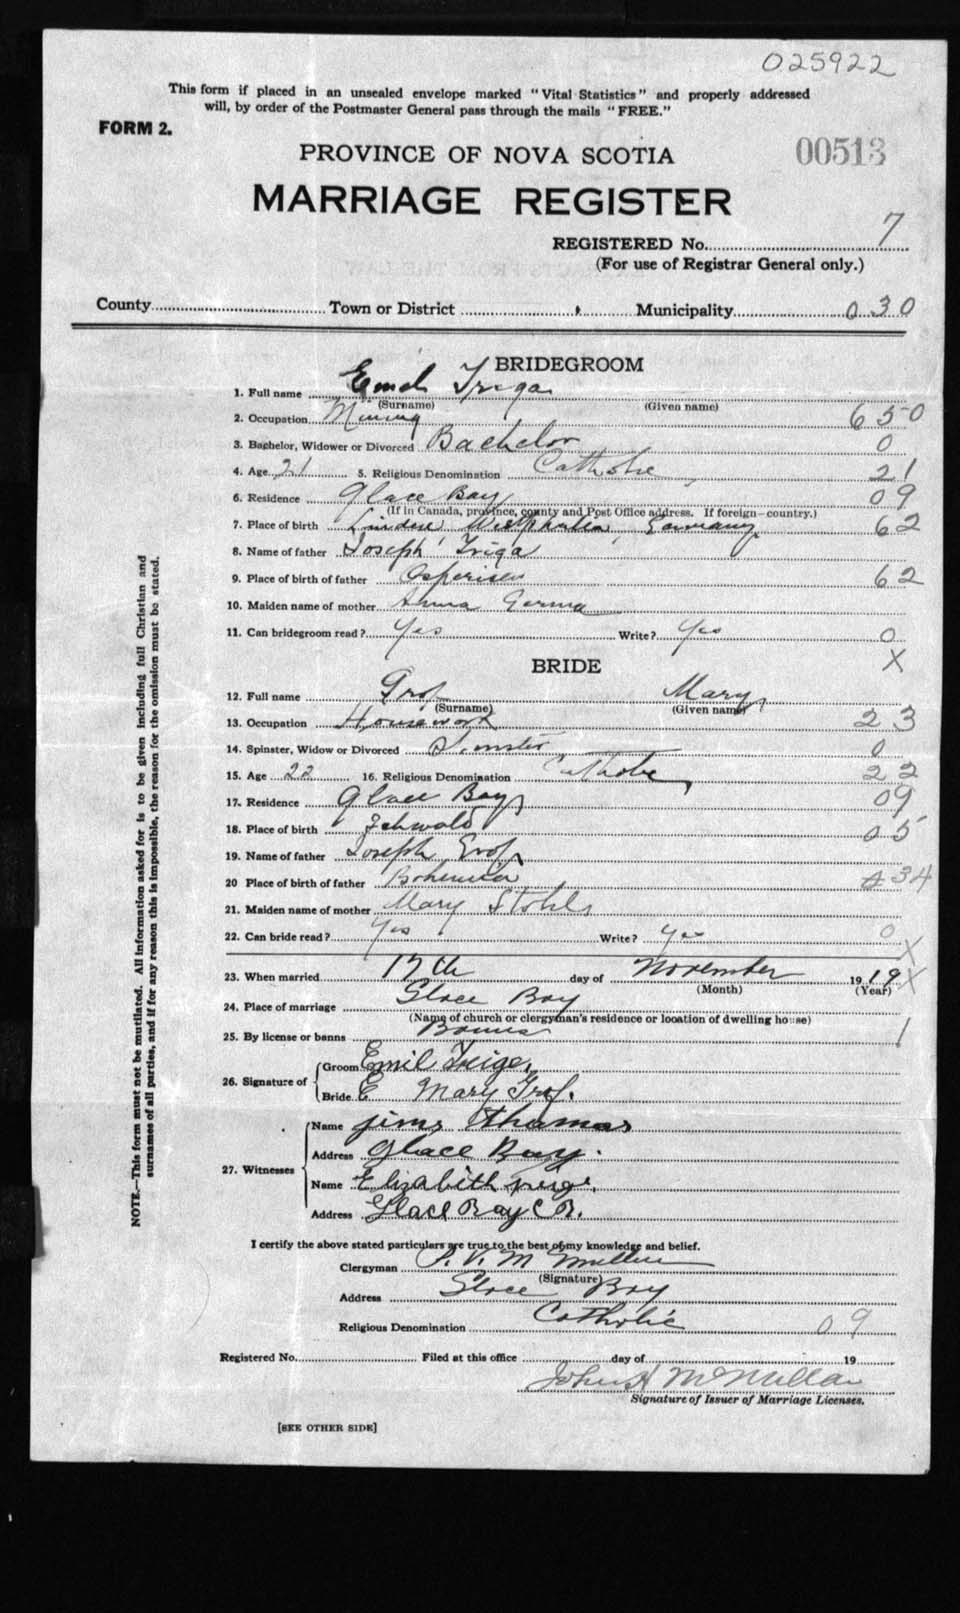 025922
This form if placed in an unsealed envelope marked "Vital Statistics" and properly addressed
will, by order of the Postmaster General pass through the mails "FREE."
FORM 2.
PROVINCE OF NOVA SCOTIA
00513
MARRIAGE REGISTER
REGISTERED No. 7
(For use of Registrar General only.)
County Town or District Municipality 030
BRIDEGROOM
1. Full name Emil Triga
(Surname) (Given name)
2. Occupation Mining 650
3. Bachelor, Widower or Divorced Bachelor 0
4. Age 21 5. Religious Denomination Catholic 21
6. Residence Glace Bay 09
(If in Canada, province, county and Post Office address. If foreign—country.)
7. Place of birth Lindere, Westphalia, Germany 62
8. Name of father Joseph Triga
9. Place of birth of father 62
10. Maiden name of mother Anna
11. Can bridegroom read? Yes Write? Yes 0
X
BRIDE
12. Full name Grof Mary
(Surname) (Given name)
13. Occupation Housework 23
14. Spinster, Widow or Divorced 0
15. Age 22 16. Religious Denomination Catholic 22
17. Residence Glace Bay 09
18. Place of birth 05
19. Name of father Joseph Grof
20 Place of birth of father Bohemia 34
21. Maiden name of mother Mary
22. Can bride read? Yes Write? Yes 0
X
23. When married 17th day of November 1919 X
(Month) (Year)
24. Place of marriage Glace Bay
(Name of church or clergyman's residence or location of dwelling house)
25. By license or banns Banns 1
26. Signature of
Groom Emil Treige.
Bride E Mary Grof.
27. Witnesses
Name jims thamas
Address Glace Bay.
Name Elizabith Treige.
Address Glace Bay C B.
I certify the above stated particulars are true to the best of my knowledge and belief.
Clergyman
(Signature)
Address Glace Bay
Religious Denomination Catholic 09
Registered No. Filed at this office day of 19
John A McMullan
Signature of Issuer of Marriage Licenses.
[SEE OTHER SIDE]
NOTE.—This form must not be mutilated. All information asked for is to be given including full Christian and
surnames of all parties, and if for any reason this is impossible, the reason for the omission must be stated.